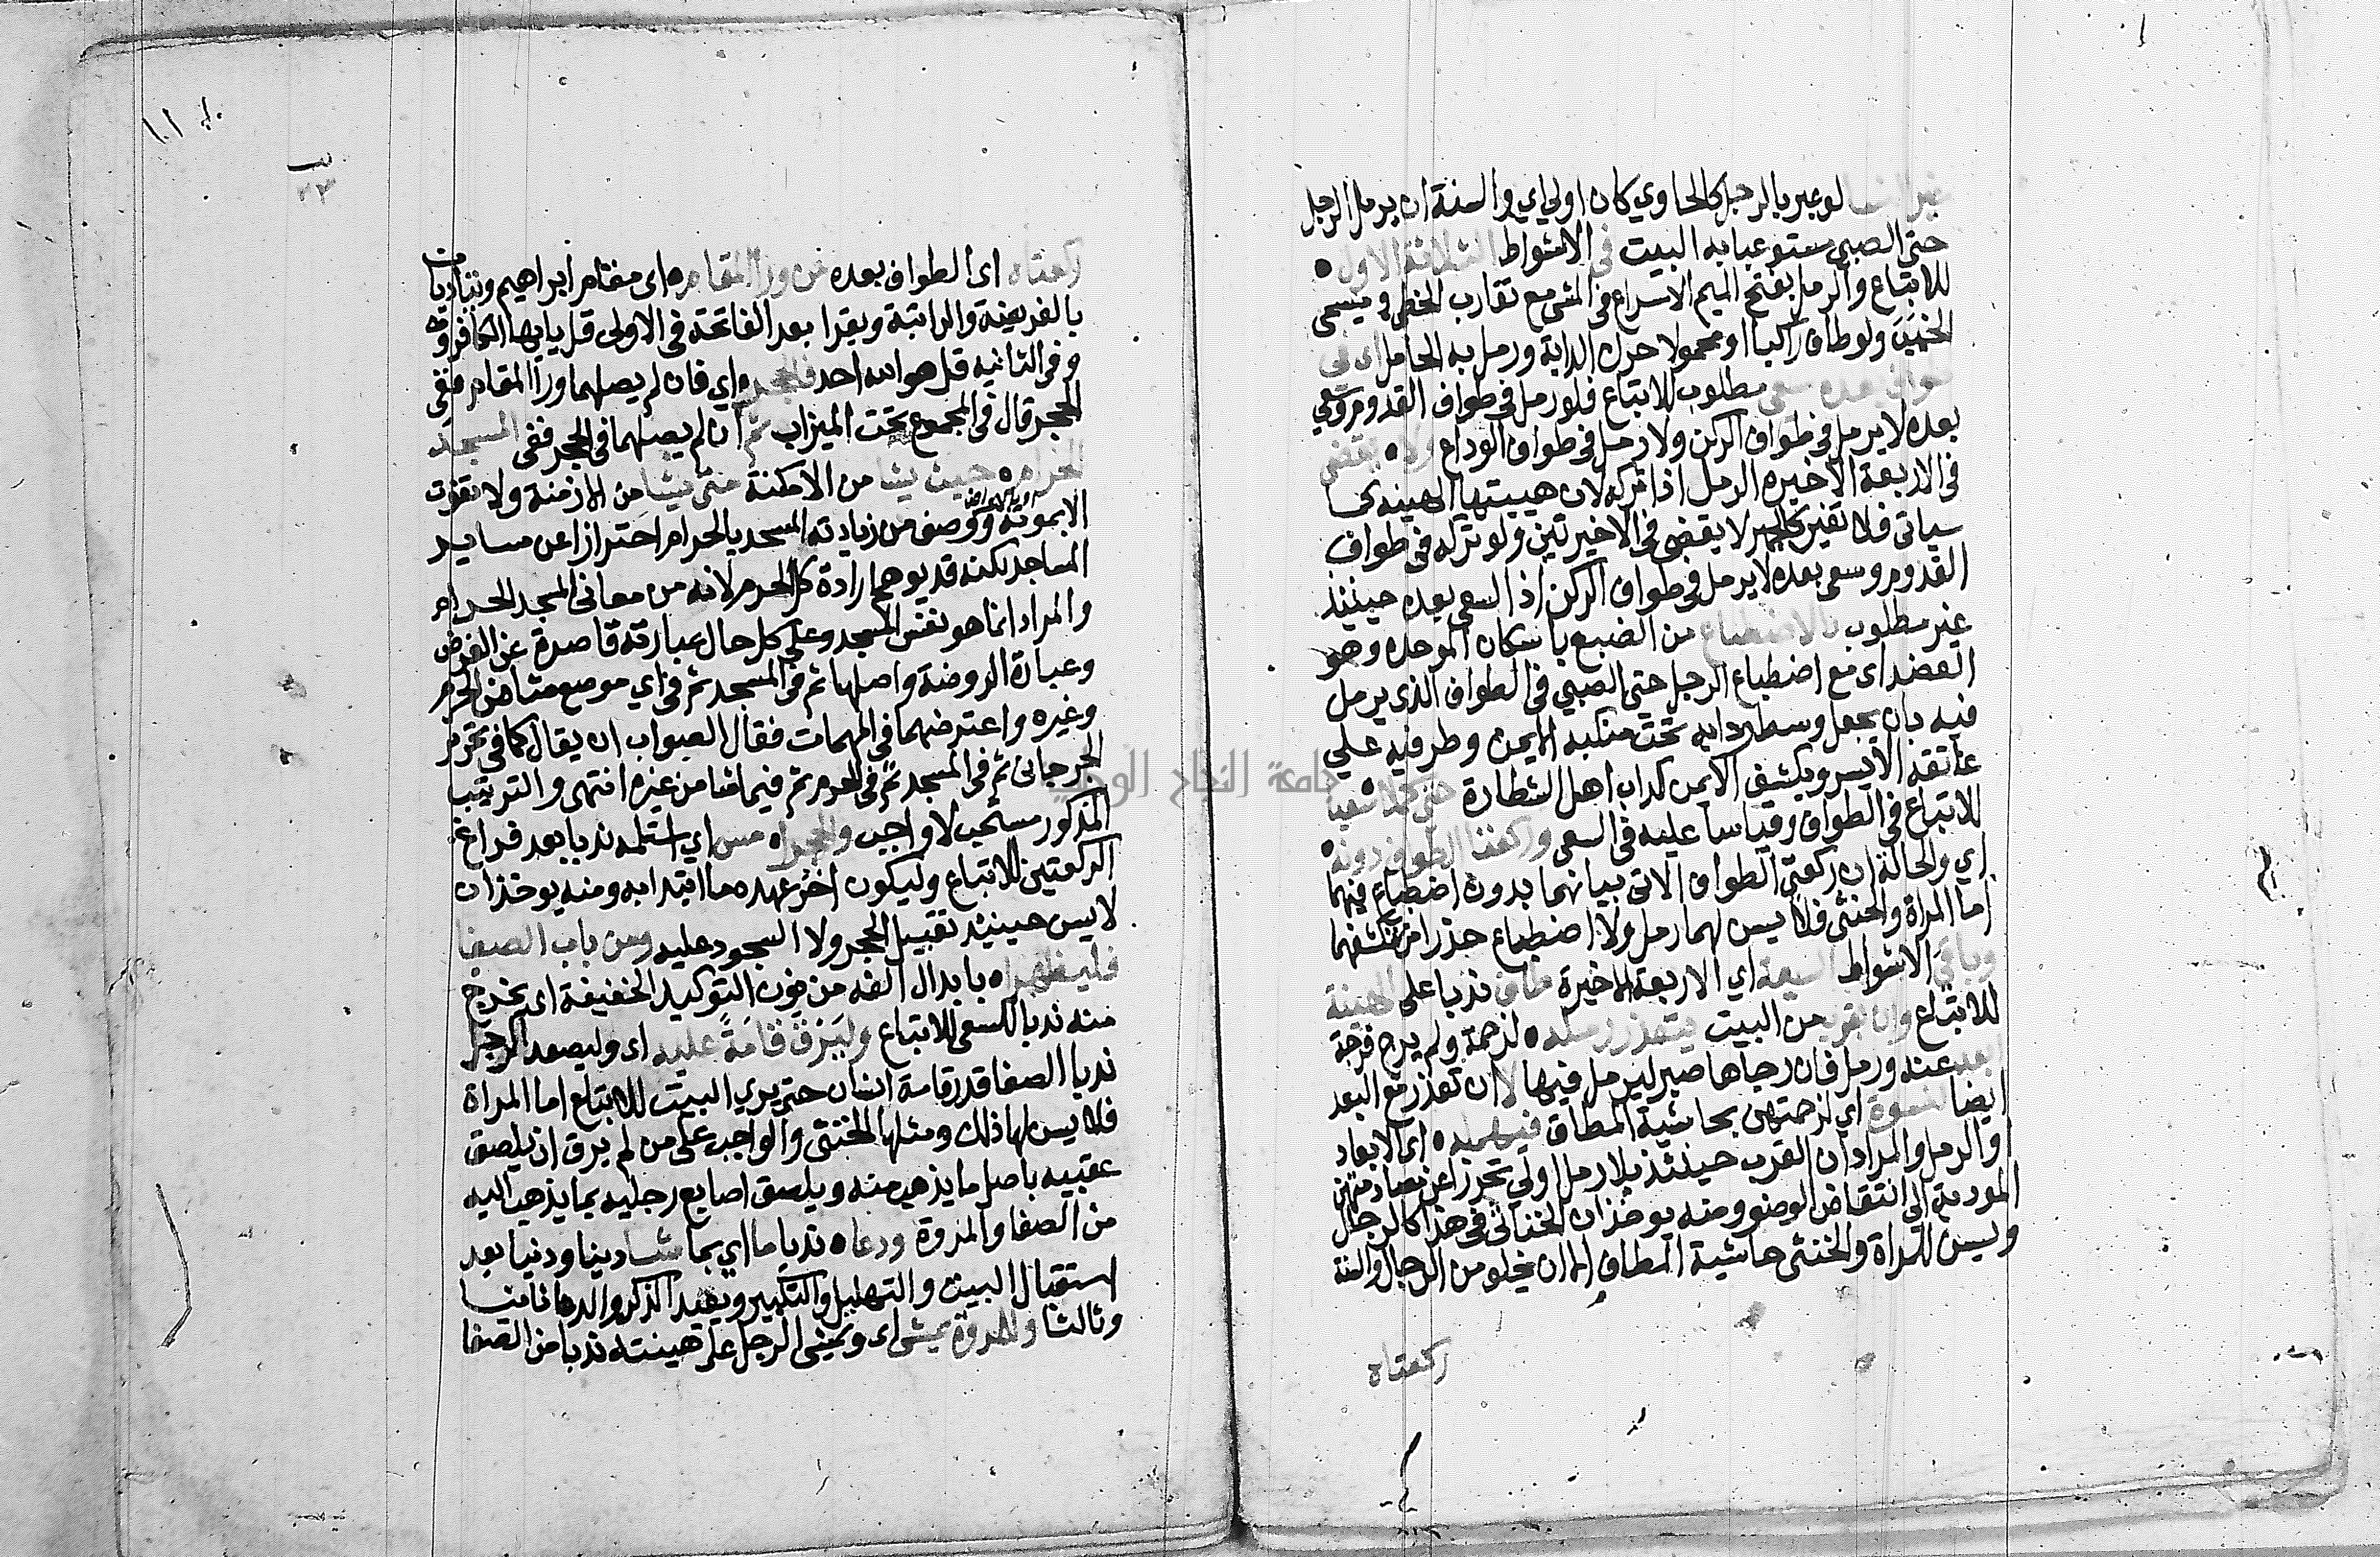 غير النسا لو عبر بالرجل كالحاوي كان اولي اي والسنة ان يرمل الرجل
حتى الصبي مستوعبا به البيت في الاشواط الثلاثة الاول
للاتباع والرمل بفتح الميم الاسراع في المشي مع تقارب الخطى ويسمى
الخبب ولو طاف راكبا او محمولا حرك الدابة ورمل به الحامل اى في
طواف بعده سعى مطلوب للاتباع فلو رمل في طواف القدوم وسعي
بعده لا يرمل في طواف الركن ولا رمل في طواف الوداع ولا يقضى
في الاربعة الاخيره الرمل اذا تركه لان هييتها الهينه كما
سياتى فلا تغير كالجهر لا يقضى في الاخيرتين ولو تركه في طواف
القدوم وسعى بعده لا يرمل في طواف الركن اذ السعى بعده حينئذ
غير مطلوب بالاضطباع من الضبع باسكان الموحده وهو
العضد اى مع اضطباع الرجل حتى الصبي في الطواف الذي يرمل
فيه بان يجعل وسط ردايه تحت منكبه الايمن وطرفيه علي
عاتقه الايسر ويكشف الايمن كداب اهل الشطارة حتى كملا سعيا
للاتباع في الطواف وقياسا عليه في السعى وركعتا الطواف دونه
اي والحالة ان ركعتي الطواف الاتى بيانهما بدون اضطباع فيهما
اما المراة والخنثى فلا يسن لهما رمل ولا اضطباع حذرا من تكشفهما
وباقي الاشواط السبعة اي الاربعة الاخيرة طاف ندبا على الهينة
للاتباع وان بقربه من البيت يتعذر رمله لزحمة ولم يرج فرجة
ابعد عنه ورمل فان رجاها صبر ليرمل فيها لا ان تعذر مع البعد
ايضا لنسوة اي لزحمتهن بحاشية المطاف فيهمله اى الابعاد
او الرمل والمراد ان القرب حينئذ بلا رمل اولي تحرزا عن مصادمتهن
المودية الى انتقاض الوضو ومنه يوخذ ان الخناثى في هذا كالرجال
وليس للمراة والخنثى حاشية المطاف الا ان يخلو من الرجال والسنة
ركعتاه
ركعتاه اى الطواف بعده من ورا المقام اى مقام ابراهيم ويتاديان
بالفريضة والراتبة ويقرا بعد الفاتحة في الاولى قل يايها الكافرون
وفي الثانيه قل هو الله احد فالحجر اي فان لم يصلهما ورا المقام ففى
الحجر قال في المجموع تحت الميزاب ثم ان لم يصلهما في الحجر ففى المسجد
الحرام حيث يشا من الامكنة متى يشا من الازمنة ولا يفوت
الا بموته ووصفى من زيادته المسجد بالحرام احترازا عن ساير
المساجد لكنه قد يوهم ارادة كل الحرم لانه من معانى المسجد الحرام
والمراد انما هو نفس المسجد وعلى كل حال عبارته قاصرة عن الغرض
وعبارة الروضة واصلها ثم في المسجد ثم في اي موضع شا من الحرم
وغيره واعترضهما في المهمات فقال الصواب ان يقال كما في تحرير
الجرجانى ثم في المسجد ثم في الحرم ثم فيما شا من غيره انتهى والترتيب
المذكور مستحب لا واجب والحجر مس اي استلمه ندبا بعد فراغ
الركعتين للاتباع وليكون اخر عهده ما ابتدا به ومنه يوخذ ان
لا يسن حينئذ تقبيل الحجر ولا السجود عليه ومن باب الصفا
فليظهرا بابدال الفه من نون التوكيد الخفيفة اى يخرج
منه ندبا للسعى للاتباع وليرق قامة عليه اى وليصعد الرجل
ندبا الصفا قدر قامة انسان حتى يرى البيت للاتباع اما المراة
فلا يسن لها ذلك ومثلها الخنثى والواجب على من لم يرق ان يلصق
عقبيه باصل ما يذهب منه ويلصق اصابع رجليه بما يذهب اليه
من الصفا والمروة ودعا ندبا ما اي بما شا دينا ودنيا بعد
استقبال البيت والتهليل والتكبير ويعيد الذكر والدعا ثانيا
وثالثا وللمروة يمشى اى ويمشى الرجل على هينته ندبا من الصفا
جامعة النجاح الوطنية